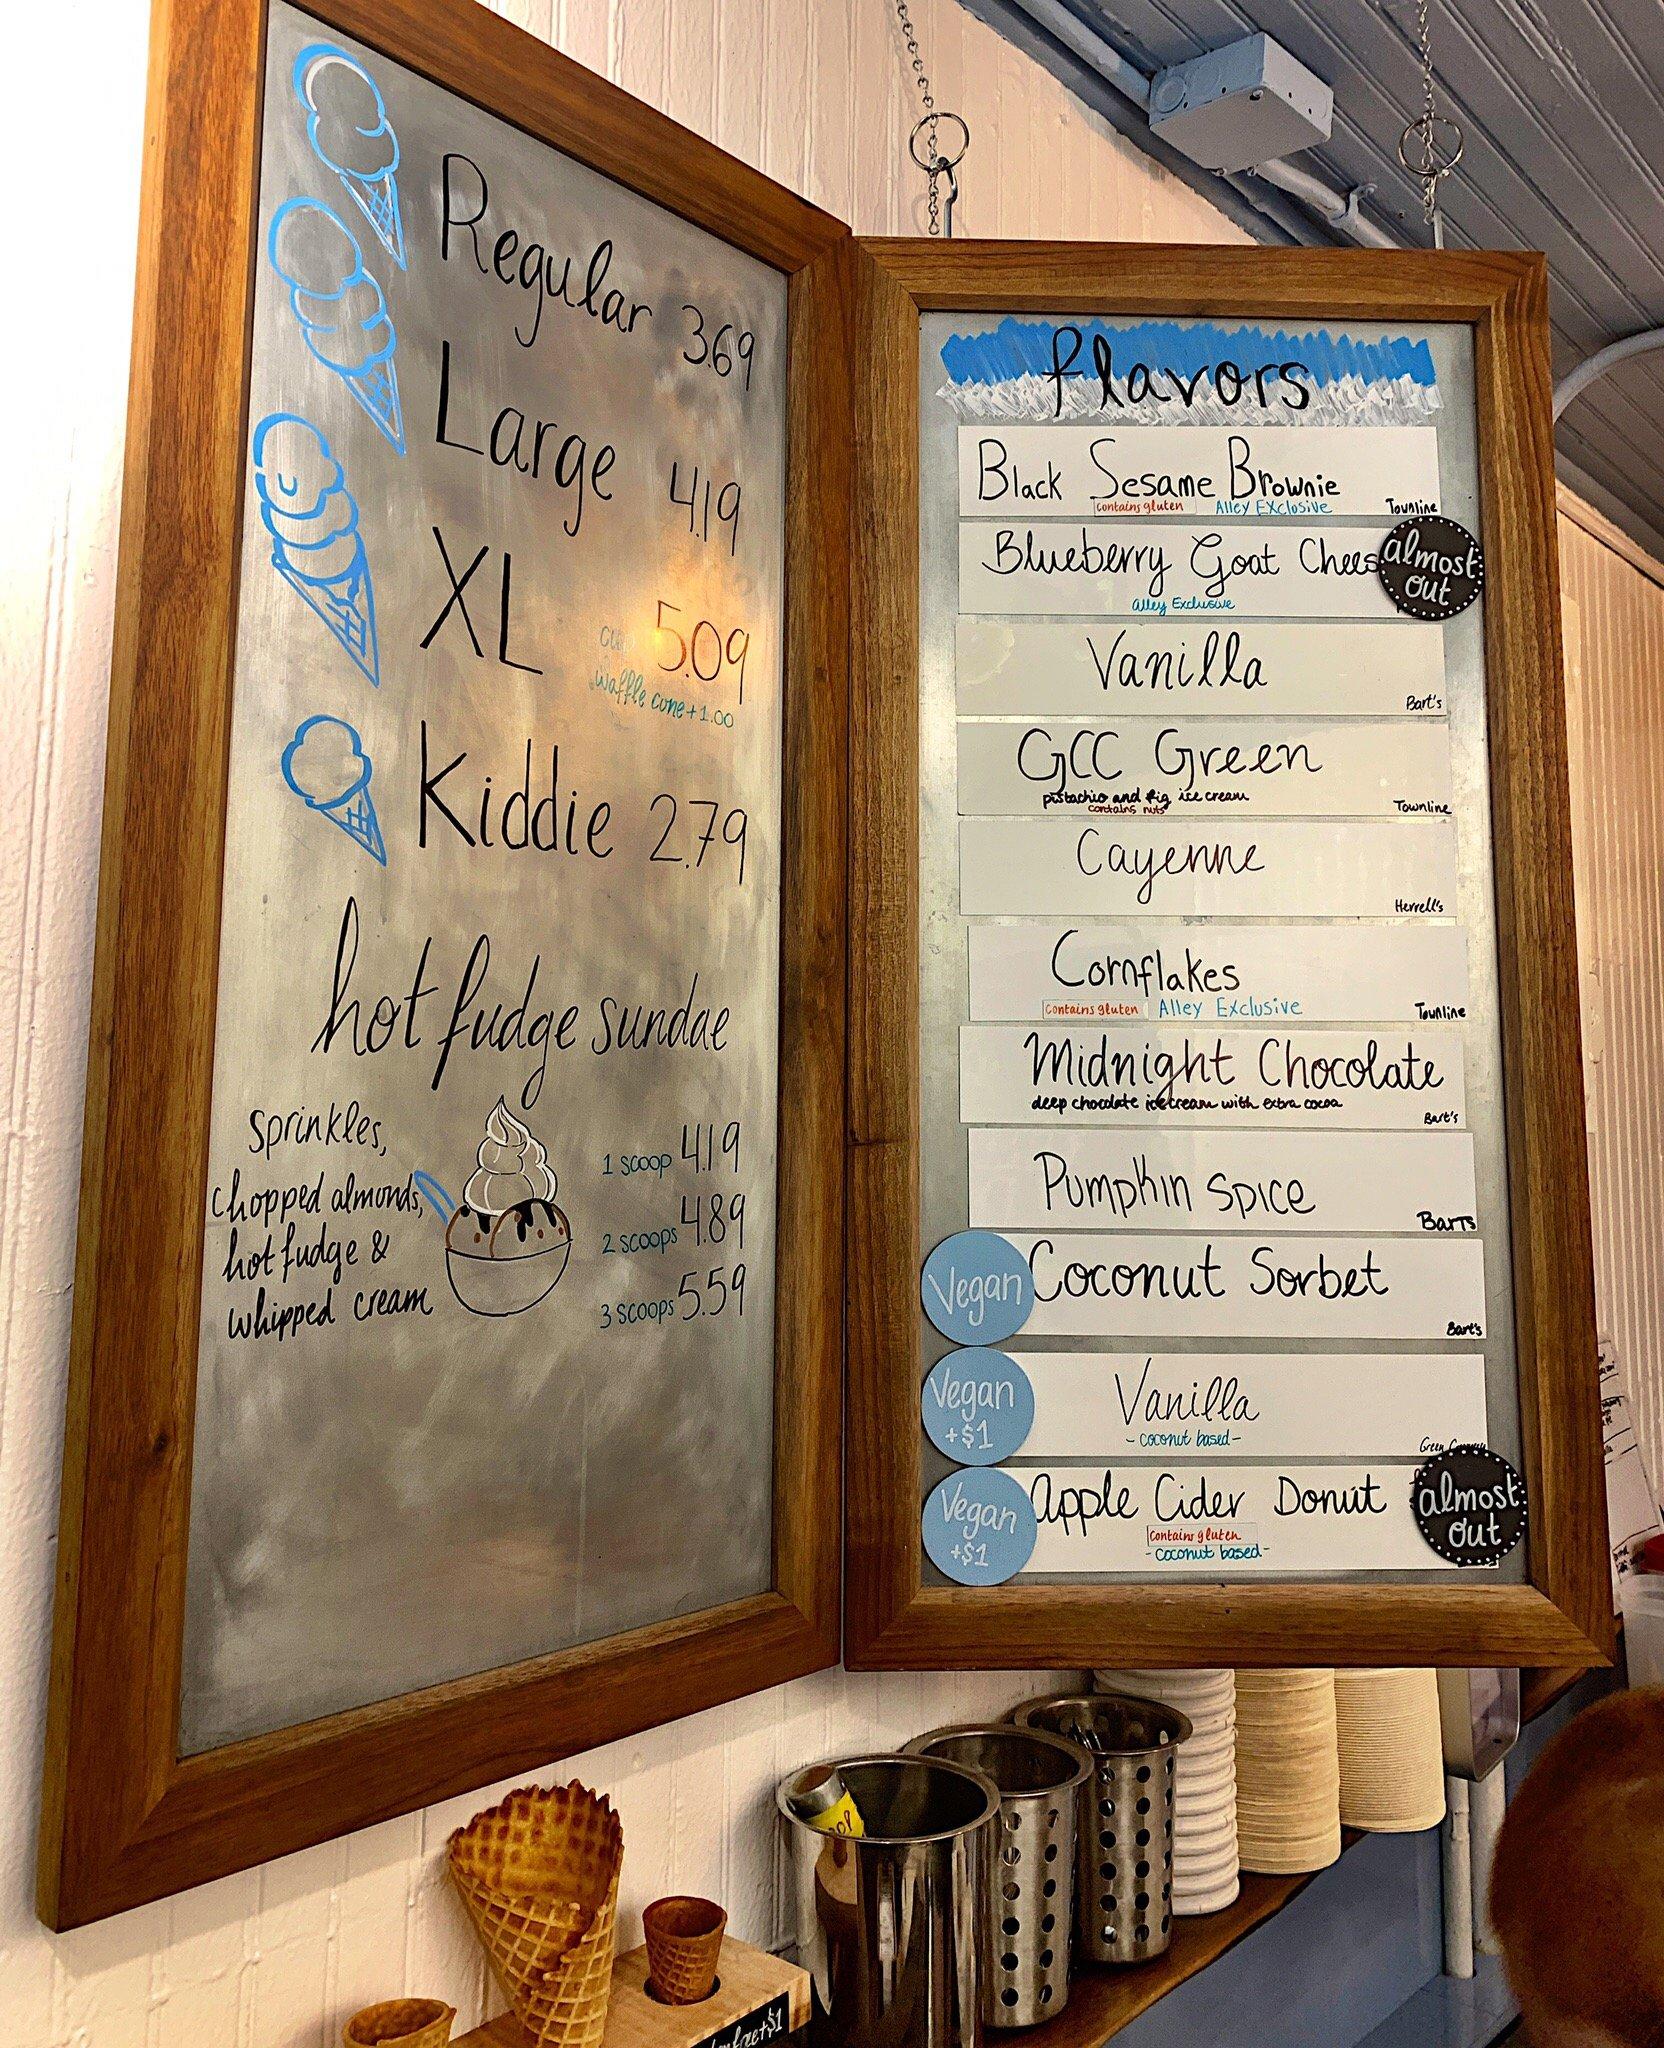 Regular 3.69
Large 4.19
XL 5.09
waffle cone +1.00
Kiddie 2.79
hot fudge sundae
sprinkles,
chopped almonds,
hot fudge &
whipped cream
1 scoop 4.19
2 scoops 4.89
3 scoops 5.59
flavors
Black Sesame Brownie
contains gluten Alley Exclosive Townline
Blueberry Goat Chees
almost out
alley Exclusive
Vanilla
Bart's
GCC Green
pistachio and fig ice cream
contains nuts
Townline
Cayenne
Herrell's
Cornflakes
contains gluten Alley Exclusive Townline
Midnight Chocolate
deep chocolate ice cream with extra cocoa
Bart's
Pumpkin Spice
Barts
Vegan
Coconut Sorbet
Bart's
Vegan
+$1
Vanilla
- coconut based -
Green
Vegan
+$1
apple Cider Donut
contains gluten
- coconut based -
almost
out